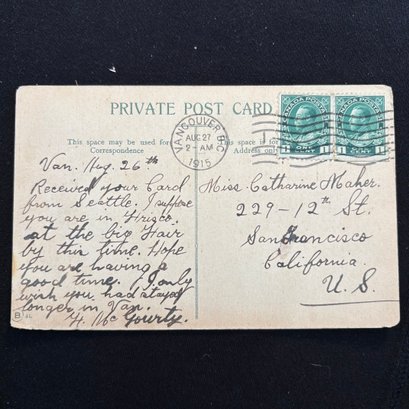 PRIVATE POST CARD
VANCOUVER B.C
AUG 27
2-AM
1915
CANADA POSTAGE
1 CENT 1
CANADA POSTAGE
1 CENT 1
This space may be used for
Correspondence
This space is for
Address only
Van. Aug. 26th
Received your Card
from Seattle. I suppose
you are in Frisco.
at the big Fair
by this time. Hope
you are having a
good time. I only
wish you had stayed
longer in Van.
H. McGourty.
Miss Catharine Maher.
229-12th St.
San Francisco
California.
U. S.
B